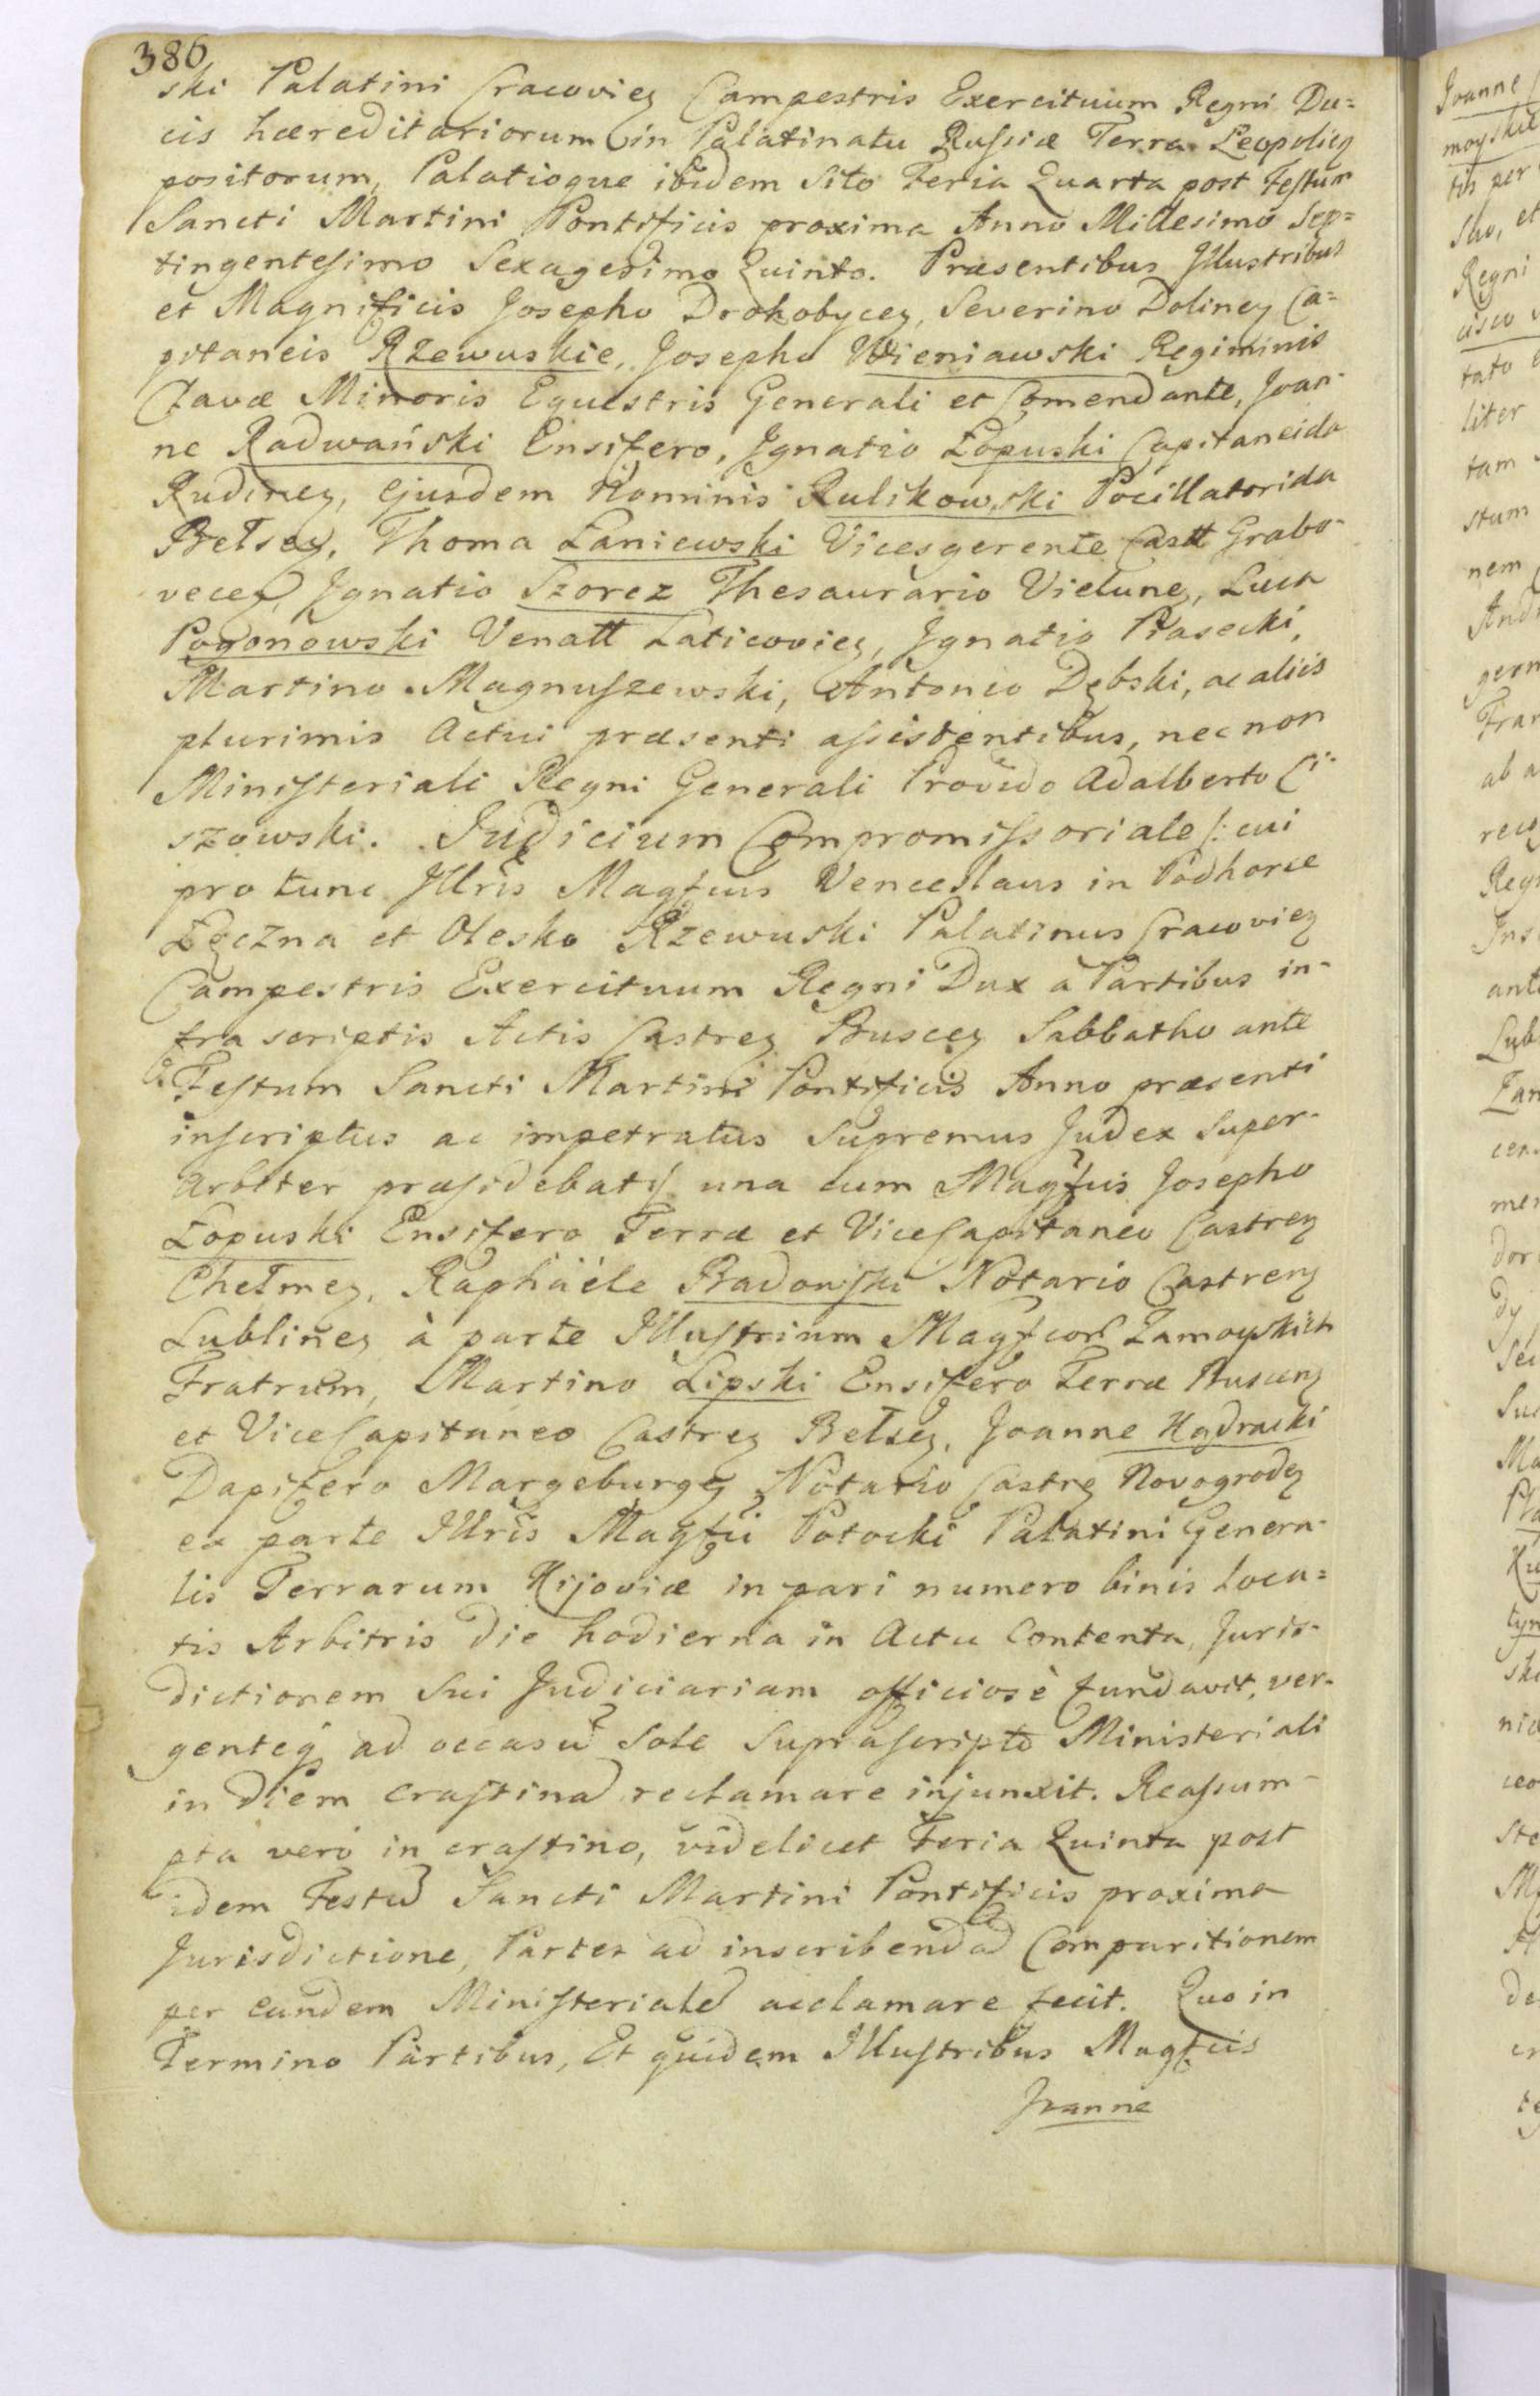 386
ski Palatini Cracovieɳ Campestris Exercituum Regni Du=
cis hæreditariorum in Palatinatu Russiæ Terra Leopolieɳ
positorum, Palatioque ibidem sito Feria Quarta post Festum
Sancti Martini Pontificis proxima Anno Millesimo Sep=
tingentesimo Sexagesimo Quinto. Præsentibus Illustribus
et Magnificis Josepho Drohobyceɳ, Severino Dolineɳ Ca=
pitaneis Rzewuskie, Josepho Wieniawski Regiminis
Clavæ Minoris Equestris Generali et Comendante, Joan-
ne Radwański Ensifero, Ignatio Łopuski Capitaneida
Rudineɳ, Ejusdem Nominis Rulikowski Pocillatorida
Bełseɳ, Thoma Łaniewski Vicesgerente Castt Grabo-
veceɳ, Ignatio Szorcz Thesaurario Vieluneɳ, Luca
Pogonowski Venatt Laticovieɳ, Ignatio Piasecki,
Martino Magnuszewski, Antonio Dębski, ac aliis
plurimis Actui præsenti assistentibus, nec non
Ministeriali Regni Generali Provido Adalberto Ci-
szowski. Judicium Compromissoriale /: cui
pro tunc Illris Magfcus Venceslaus in Podhorce
Łęczna et Olesko Rzewuski Palatinus Cracovieɳ
Campestris Exercituum Regni Dux à Partibus in-
fra scriptis Actis Castreɳ Busceɳ Sabbatho ante
Festum Sancti Martini Pontificis Anno præsenti
inscriptus ac impetratus Supremus Judex Super-
arbiter præsidebat :/ una cum Magfcis Josepho
Łopuski Ensifero Terræ et ViceCapitaneo Castreɳ
Chełmeɳ, Raphaële Badowski Notario Castrenɳ
Lublineɳ à parte Illustrium Magfcor Zamoyskich
Fratrum, Martino Lipski Ensifero Terræ Buscenɳ
et ViceCapitaneo Castreɳ Bełseɳ, Joanne Hadracki
Dapifero Margeburgeɳ Notario Castreɳ Novogrodeɳ
ex parte Illris Magfci Potocki Palatini Genera-
lis Terrarum Kijoviæ in pari numero binis loca=
tis Arbitris die hodierna in Actu Contenta, Juris-
dictionem Sui Judiciariam officiosè fundavit, ver-
genteq ad occasū Sole Suprascripto Ministeriali
in diem crastinā reclamare injunxit. Reassum-
pta verò in crastino, videlicet Feria Quinta post
idem Festū Sancti Martini Pontificis proxima
Jurisdictione, Partes ad inscribendā Comparitionem
per eundem Ministerialē acclamare fecit. Quo in
Termino Partibus, Et quidem Illustribus Magfcis
Joanne